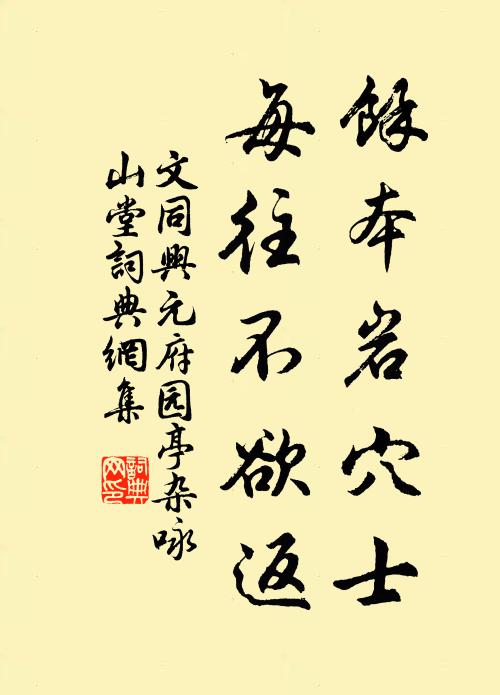 餘本岩穴士
每往不欲返
文同興元府园亭杂咏
山堂詞典網集
詞典网印